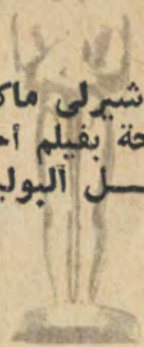 شيرلى ماك
حة بفيلم أح
ـــل البوليـ